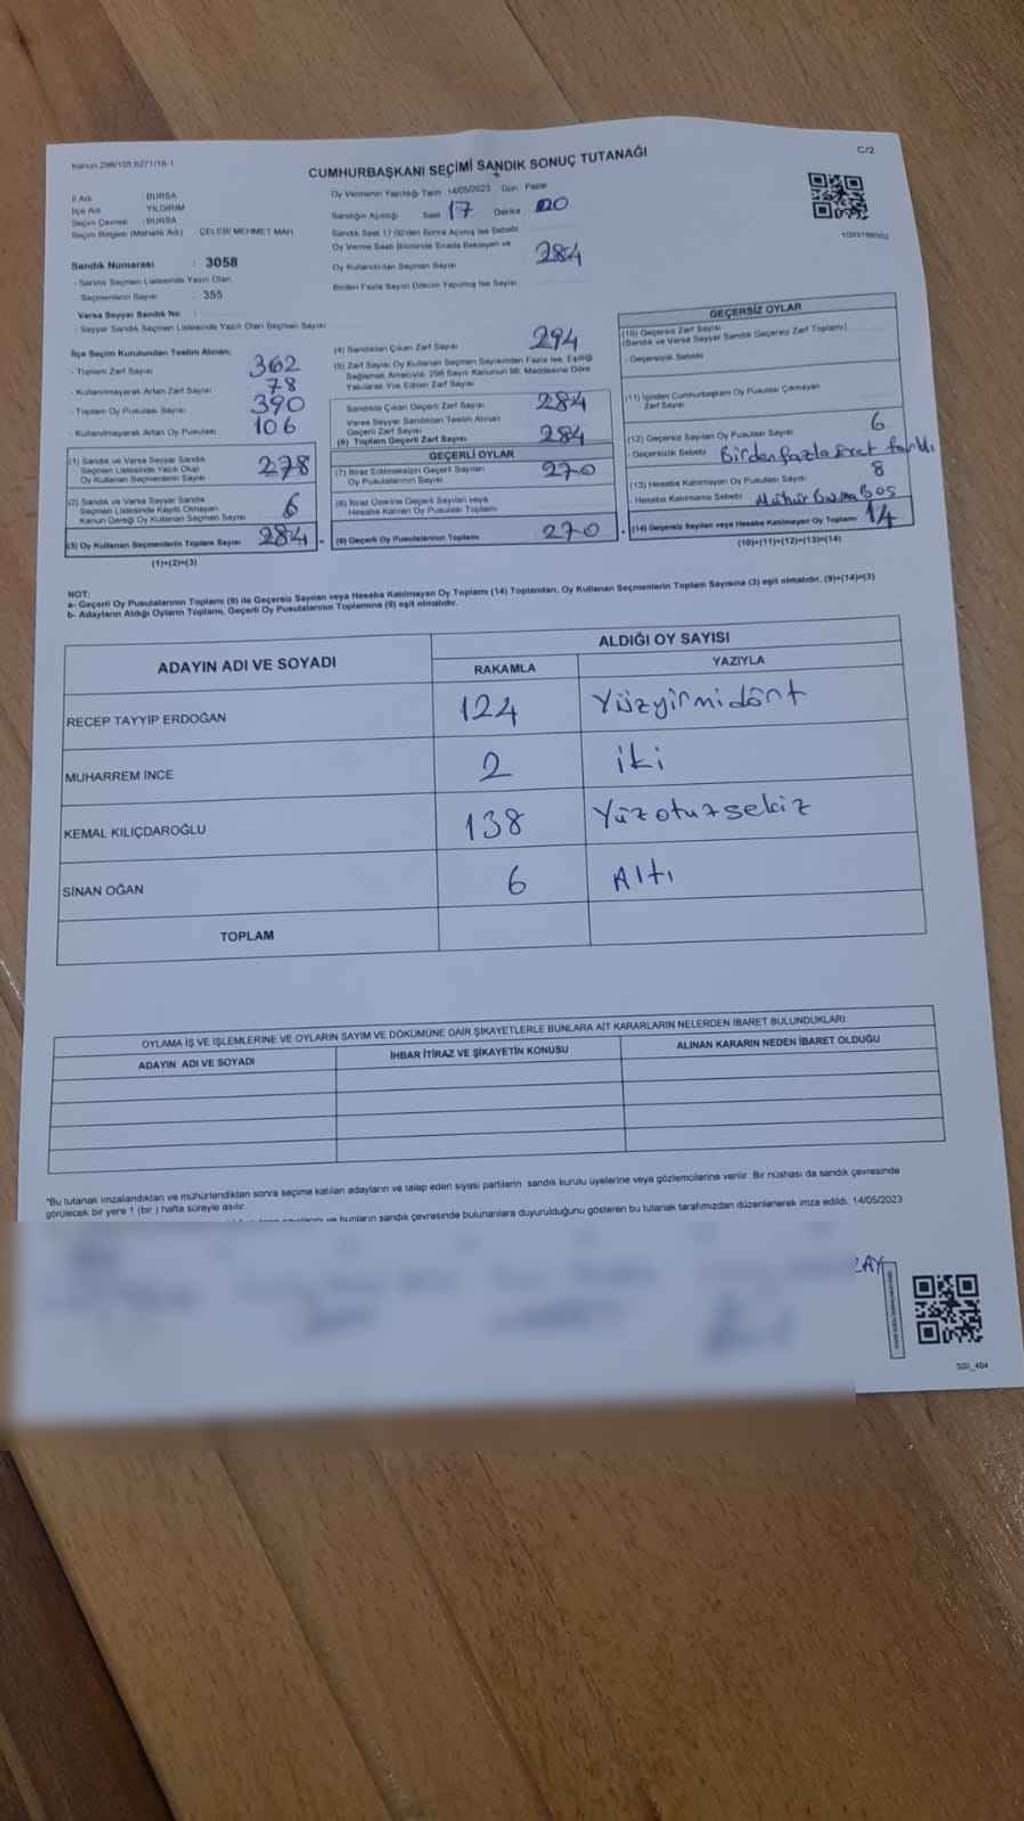 C/2
CUMHURBAŞKANI SEÇİMİ SANDIK SONUÇ TUTANAĞI
İl Adı : BURSA
İlçe Adı : YILDIRIM
Seçim Çevresi : BURSA
Seçim Bölgesi (Mahalle Adı) : ÇELEBİ MEHMET MAH.
Sandık Numarası : 3058
- Sandık Seçmen Listesinde Yazılı Olan
Seçmenlerin Sayısı : 355
Varsa Seyyar Sandık No :
- Seyyar Sandık Seçmen Listesinde Yazılı Olan Seçmen Sayısı
Oy Vermenin Yapıldığı Tarih 14/05/2023 Gün Pazar
Sandığın Açıldığı Saat 17 Dakika 20
Sandık Saat 17:00'den Sonra Açılmış İse Sebebi
Oy Verme Saati Bitiminde Sırada Bekleyen ve
Oy Kullandırılan Seçmen Sayısı 284
Birden Fazla Sayım Döküm Yapılmış İse Sayısı
İlçe Seçim Kurulundan Teslim Alınan;
- Toplam Zarf Sayısı 362
- Kullanılmayarak Artan Zarf Sayısı 78
- Toplam Oy Pusulası Sayısı 390
- Kullanılmayarak Artan Oy Pusulası 106
(1) Sandık ve Varsa Seyyar Sandık
Seçmen Listesinde Yazılı Olan
Oy Kullanan Seçmenlerin Sayısı 278
(2) Sandık ve Varsa Seyyar Sandık
Seçmen Listesinde Kayıtlı Olmayan
Kanun Gereği Oy Kullanan Seçmen Sayısı 6
(3) Oy Kullanan Seçmenlerin Toplam Sayısı 284
(1)+(2)=(3)
(4) Sandıktan Çıkan Zarf Sayısı 294
(5) Zarf Sayısı Oy Kullanan Seçmen Sayısından Fazla İse, Eşitliği
Sağlamak Amacıyla, 298 Sayılı Kanunun 98. Maddesine Göre
Yakılarak Yok Edilen Zarf Sayısı
Sandıkta Çıkan Geçerli Zarf Sayısı 284
Varsa Seyyar Sandıktan Teslim Alınan
Geçerli Zarf Sayısı
(6) Toplam Geçerli Zarf Sayısı 284
GEÇERLİ OYLAR
(7) İtiraz Edilmeksizin Geçerli Sayılan
Oy Pusulalarının Sayısı 270
(8) İtiraz Üzerine Geçerli Sayılan veya
Hesaba Katılan Oy Pusulası Toplamı
(9) Geçerli Oy Pusulalarının Toplamı 270
GEÇERSİZ OYLAR
(10) Geçersiz Zarf Sayısı
(Sandık ve Varsa Seyyar Sandık Geçersiz Zarf Toplamı)
- Geçersizlik Sebebi
(11) İçinden Cumhurbaşkanı Oy Pusulası Çıkmayan
Zarf Sayısı
(12) Geçersiz Sayılan Oy Pusulası Sayısı 6
- Geçersizlik Sebebi Birden fazla
(13) Hesaba Katılmayan Oy Pusulası Sayısı 8
- Hesaba Katılmama Sebebi Mühür Boş
(14) Geçersiz Sayılan veya Hesaba Katılmayan Oy Toplamı 14
(10)+(11)+(12)+(13)=(14)
NOT:
a- Geçerli Oy Pusulalarının Toplamı (9) ile Geçersiz Sayılan veya Hesaba Katılmayan Oy Toplamı (14) Toplamları, Oy Kullanan Seçmenlerin Toplam Sayısına (3) eşit olmalıdır. (9)+(14)=(3)
b- Adayların Aldığı Oyların Toplamı, Geçerli Oy Pusulalarının Toplamına (9) eşit olmalıdır.
ADAYIN ADI VE SOYADI
ALDIĞI OY SAYISI
RAKAMLA YAZIYLA
RECEP TAYYİP ERDOĞAN 124 Yüzyirmidört
MUHARREM İNCE 2 iki
KEMAL KILIÇDAROĞLU 138 Yüzotuzsekiz
SİNAN OĞAN 6 Altı
TOPLAM
OYLAMA İŞ VE İŞLEMLERİNE VE OYLARIN SAYIM VE DÖKÜMÜNE DAİR ŞİKAYETLERLE BUNLARA AİT KARARLARIN NELERDEN İBARET BULUNDUKLARI
ADAYIN ADI VE SOYADI İHBAR İTİRAZ VE ŞİKAYETİN KONUSU ALINAN KARARIN NEDEN İBARET OLDUĞU
*Bu tutanak imzalandıktan ve mühürlendikten sonra seçime katılan adayların ve talep eden siyasi partilerin sandık kurulu üyelerine veya gözlemcilerine verilir. Bir nüshası da sandık çevresinde
görülecek bir yere 1 (bir) hafta süreyle asılır.
ve bunların sandık çevresinde bulunanlara duyurulduğunu gösteren bu tutanak tarafımızdan düzenlenerek imza edildi. 14/05/2023